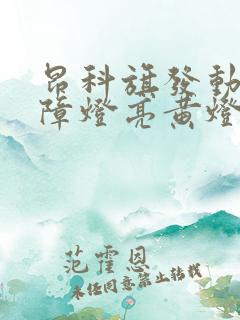 昂科旗發動
障燈亮黃燈
范霍恩
未經同意禁止轉載